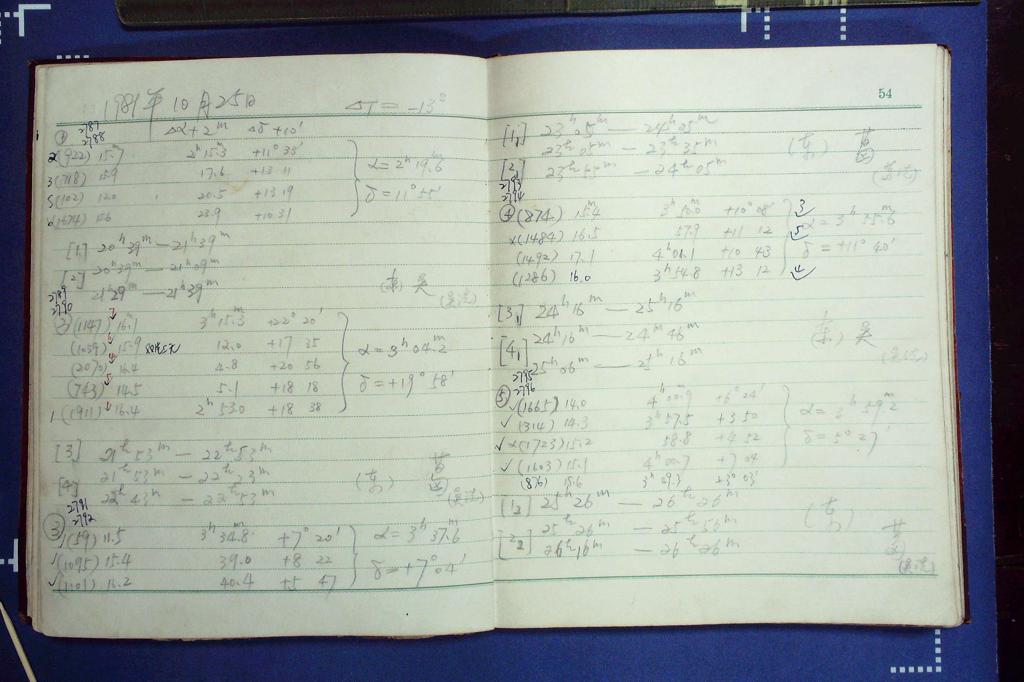 1981年10月25日 ΔT = -13°
2787
2788
① Δα+2ᵐ Δδ+10′
2(922) 15.7 2ʰ15.3 +11°33′
3(718) 15.9 17.6 +13 11
5(102) 12.0 20.5 +13 19
6(1674) 15.6 23.9 +10.31
α = 2ʰ19.6
δ = 11°55′
[1] 20ʰ39ᵐ — 21ʰ39ᵐ
[2] 20ʰ39ᵐ — 21ʰ09ᵐ
21ʰ29 — 21ʰ39ᵐ
(东) 吴
2789
2790
② (1147) 16.1 3ʰ15.3 +22°20′
(1039) 15.9 12.0 +17 35
(2070) 16.4 4.8 +20 56
(743) 14.5 5.1 +18 18
1 (1911) 16.4 2ʰ53.0 +18 38
α = 3ʰ04.2
δ = +19°58′
[3] 21ʰ53ᵐ — 22ʰ53ᵐ
[4] 21ʰ53ᵐ — 22ʰ23ᵐ
22ʰ43ᵐ — 22ʰ53ᵐ
(东)
2791
2792
③ (59) 11.5 3ʰ34.8ᵐ +7°20′
(1095) 15.4 39.0 +8 22
(1101) 16.2 40.4 +5 47
α = 3ʰ37.6ᵐ
δ = +7°04′
54
[1₁] 23ʰ05ᵐ — 24ʰ05ᵐ
[2₁] 23ʰ05ᵐ — 23ʰ35ᵐ
23ʰ55ᵐ — 24ʰ05ᵐ
(东)
2793
2794
④ (874) 15.4 3ʰ50.0ᵐ +10°08′ 3
x(1484) 16.5 57.9 +11 12 5
(1492) 17.1 4ʰ01.1 +10 43
(1286) 16.0 3ʰ54.8 +13 12 4
α = 3ʰ55.6ᵐ
δ = +11°40′
[3₁] 24ʰ16ᵐ — 25ʰ16ᵐ
[4₁] 24ʰ16ᵐ — 24ʰ46ᵐ
25ʰ06ᵐ — 25ʰ16ᵐ
(东) 吴
2795
2796
⑤ ✓(1665) 14.0 4ʰ00.9 +6°24′
✓(314) 14.3 3ʰ57.5 +3 50
✓x(1723) 15.2 58.8 +4 52
✓(1603) 15.1 4ʰ00.7 +7 04
(876) 15.6 3ʰ59.3 +3°03′
α = 3ʰ59.2
δ = 5°27′
[1₂] 25ʰ26ᵐ — 26ʰ26ᵐ
[2₂] 25ʰ26ᵐ — 25ʰ56ᵐ
26ʰ16ᵐ — 26ʰ26ᵐ
(东)